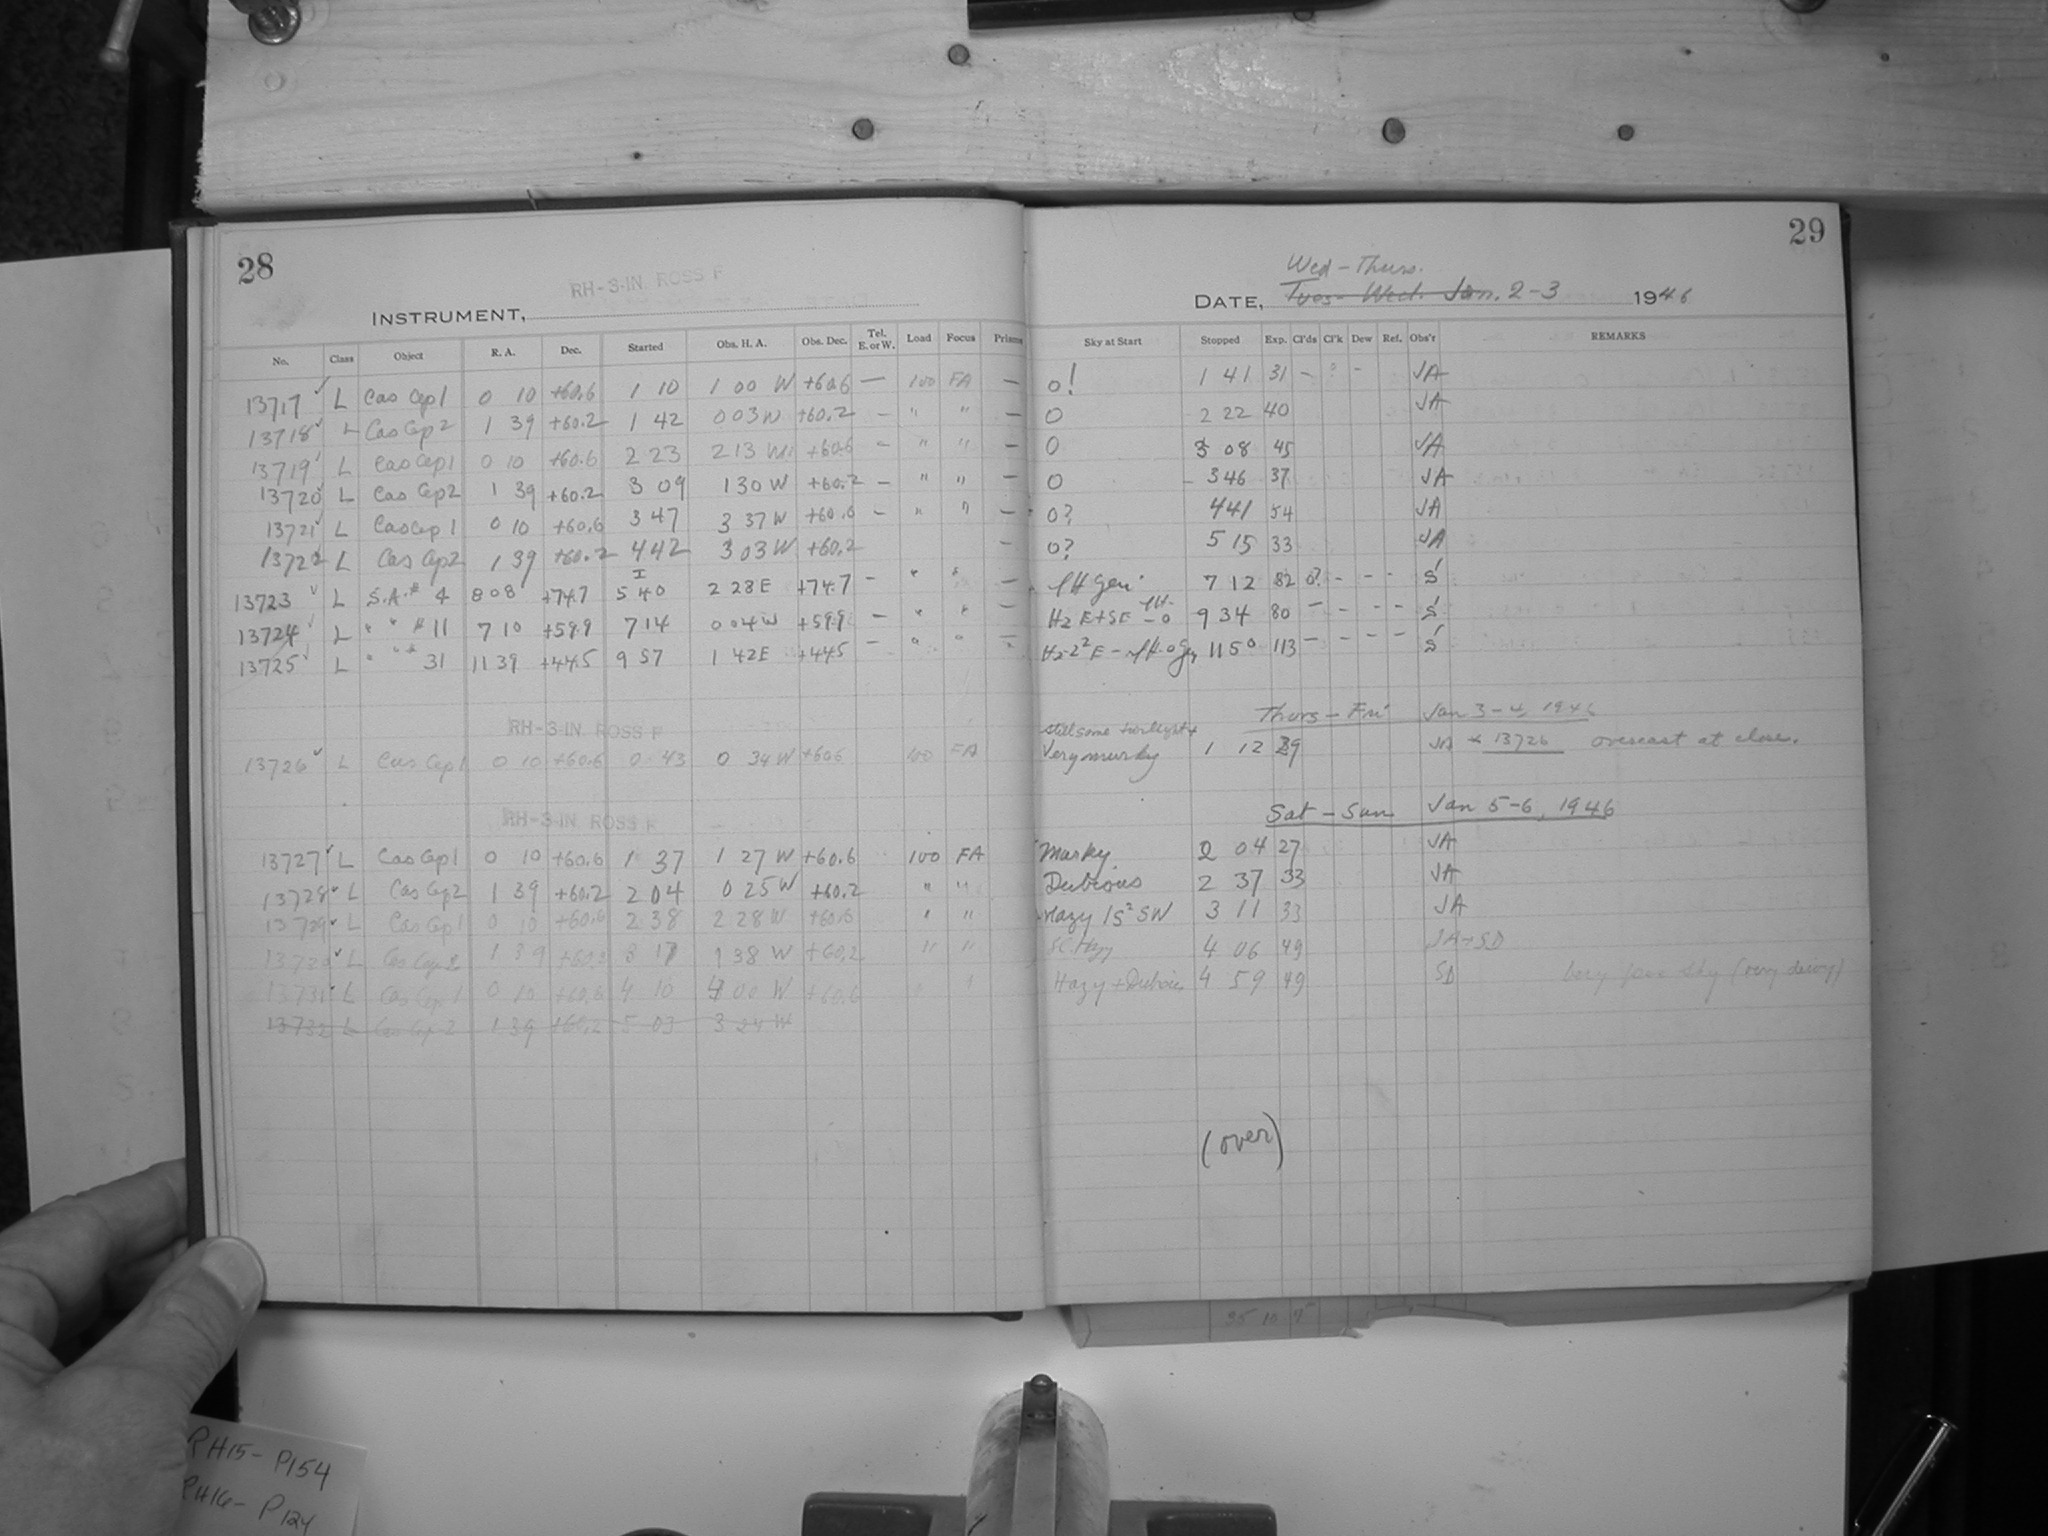 28
RH-3-IN. ROSS F
INSTRUMENT,
No. Class Object R. A. Dec. Started Obs. H. A. Obs. Dec. Tel. E. or W. Load Focus Prisms
13717 L Cas Cep 1 0 10 +60.6 1 10 1 00 W +60.6 — 100 FA —
13718 L Cas Cep 2 1 39 +60.2 1 42 0 03 W +60.2 - " " —
13719 L Cas Cep 1 0 10 +60.6 2 23 2 13 W +60.6 - " " —
13720 L Cas Cep 2 1 39 +60.2 3 09 1 30 W +60.2 - " " —
13721 L Cas Cep 1 0 10 +60.6 3 47 3 37 W +60.6 - " " —
13722 L Cas Cep 2 1 39 +60.2 4 42 3 03 W +60.2 —
13723 L S.A. # 4 8 08 +74.7 5 40 2 28 E +74.7 - " " —
13724 L " " # 11 7 10 +59.9 7 14 0 04 W +59.9 - " " —
13725 L " " " 31 11 39 +44.5 9 57 1 42 E +44.5 - " " —
RH-3-IN. ROSS F
13726 L Cas Cep 1 0 10 +60.6 0 43 0 34 W +60.6 100 FA
RH-3-IN. ROSS F
13727 L Cas Cep 1 0 10 +60.6 1 37 1 27 W +60.6 100 FA
13728 L Cas Cep 2 1 39 +60.2 2 04 0 25 W +60.2 " "
13729 L Cas Cep 1 0 10 +60.6 2 38 2 28 W +60.6 " "
13730 L Cas Cep 2 1 39 3 17 1 38 W +60.2 " "
13731 L Cas Cep 1 0 10 +60.6 4 10 4 00 W +60.6
13732 L Cas Cep 2 1 39 +60.2 5 03 3 24 W
29
Wed - Thurs.
DATE, Tues - Wed. Jan. 2-3 1946
Sky at Start Stopped Exp. Cl'ds Cl'k Dew Ref. Obs'r REMARKS
0! 1 41 31 - ? - JA
0 2 22 40 JA
0 3 08 45 JA
0 3 46 37 JA
0? 4 41 54 JA
0? 5 15 33 JA
7 12 82 0? - - - S
Hz E+SE 9 34 80 - - - - S
11 50 113 - - - - S
Thurs - Fri Jan 3-4, 1946
still some twilight +
Very murky 1 12 29 JA * 13726 overcast at close.
Sat - Sun Jan 5-6, 1946
Murky 2 04 27 JA
Dubious 2 37 33 JA
Hazy 1S² SW 3 11 33 JA
4 06 49 JA + SD
Hazy + Dubious 4 59 49 SD Very poor sky (very dewy)
(over)
35 10
RH15 - P154
RH16 - P124